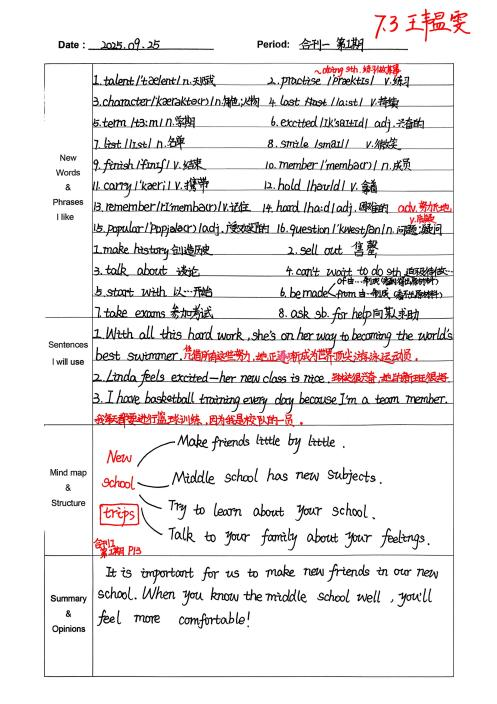 7.3 王韫雯
Date: 2025.09.25 Period: 合刊一 第1期
New Words & Phrases I like
~doing sth.
1. talent /'tælənt/ n. 天赋 2. practise /'præktɪs/ v. 练习
3. character /'kærəktə(r)/ n. 角色;人物 4. last /lɑːst/ v. 持续
5. term /tɜːm/ n. 学期 6. excited /ɪk'saɪtɪd/ adj. 兴奋的
7. list /lɪst/ n. 名单 8. smile /smaɪl/ v. 微笑
9. finish /'fɪnɪʃ/ v. 结束 10. member /'membə(r)/ n. 成员
11. carry /'kæri/ v. 携带 12. hold /həʊld/ v. 拿着
13. remember /rɪ'membə(r)/ v. 记住 14. hard /hɑːd/ adj. 困难的 adv. 努力地
15. popular /'pɒpjələ(r)/ adj. 受欢迎的 16. question /'kwestʃən/ n. 问题 v. 询问
1. make history 创造历史 2. sell out 售罄
3. talk about 谈论 4. can't wait to do sth. 迫不及待做…
5. start with 以…开始 6. be made of 由…制成(看得出原材料) from 由…制成(看不出原材料)
7. take exams 参加考试 8. ask sb. for help 向某人求助
Sentences I will use
1. With all this hard work, she's on her way to becoming the world's
best swimmer. 凭借所有这些努力,她正逐渐成为世界顶尖游泳运动员。
2. Linda feels excited—her new class is nice. 琳达很兴奋,她的新班级很好
3. I have basketball training every day because I'm a team member.
我每天都要进行篮球训练,因为我是校队的一员。
Mind map & Structure
New school trips
Make friends little by little.
Middle school has new subjects.
Try to learn about your school.
Talk to your family about your feelings.
合刊1
第1期 P13
Summary & Opinions
It is important for us to make new friends in our new
school. When you know the middle school well, you'll
feel more comfortable!